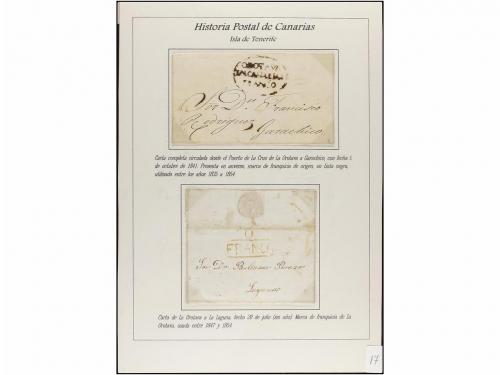 Historia Postal de Canarias
Isla de Tenerife
OROTAVA
YSLAS CANARIAS
FRANCO
Sor Dn. Francisco
Rodriguez
Garachico
Carta completa circulada desde el Puerto de La Cruz de La Orotava a Garachico, con fecha 5
de octubre de 1841. Presenta en anverso, marca de franquicia de origen, en tinta negra,
utilizada entre los años 1835 a 1854
O
FRANCO
Sor Dn.
Laguna
Carta de La Orotava a La Laguna, fecha 29 de julio (sin año) Marca de franquicia de La
Orotava, usada entre 1847 y 1854
17